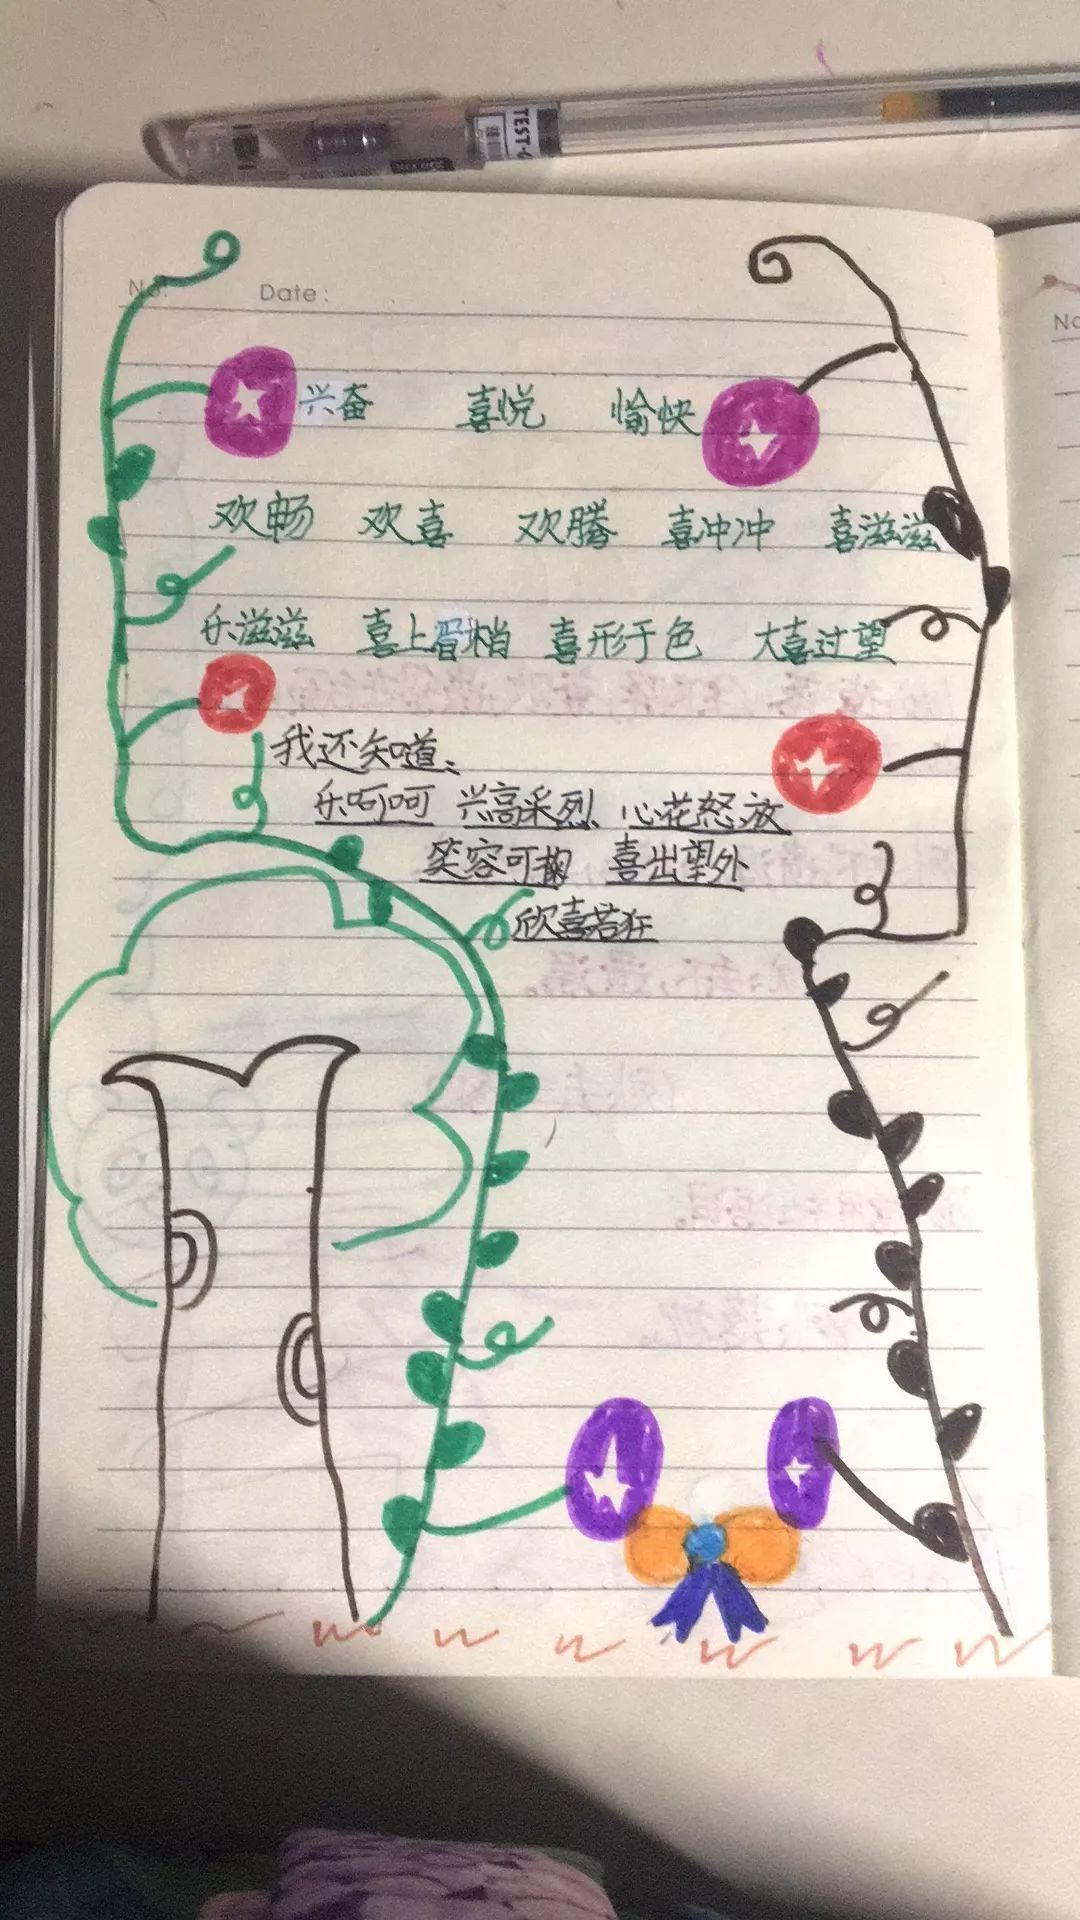 TEST-
No:
Date:
No
兴奋 喜悦 愉快
欢畅 欢喜 欢腾 喜冲冲 喜滋滋
乐滋滋 喜上眉梢 喜形于色 大喜过望
我还知道:
乐呵呵 兴高采烈 心花怒放
笑容可掬 喜出望外
欣喜若狂